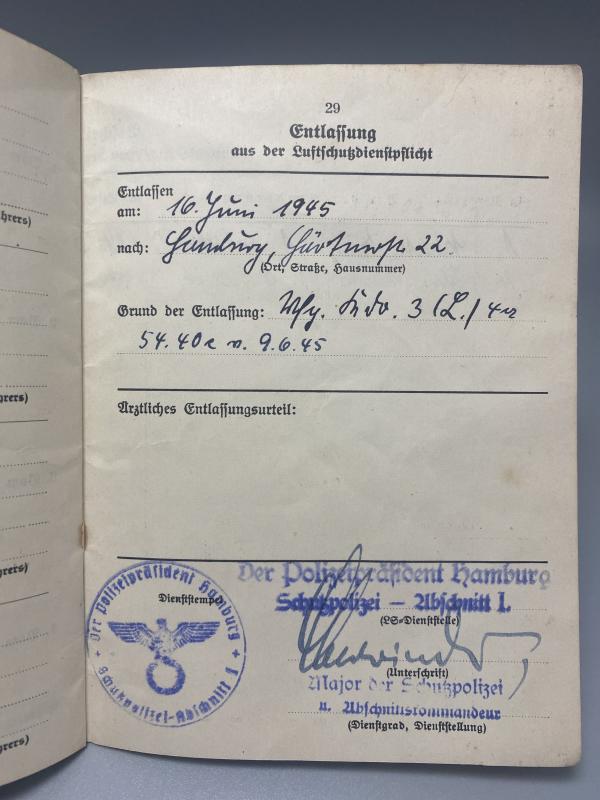 29
Entlassung
aus der Luftschutzdienstpflicht
Entlassen
am: 16. Juni 1945
nach: Hamburg, Gärtnerstr. 22.
(Ort, Straße, Hausnummer)
Grund der Entlassung: Kdo. 3 (L.)
54.40 v. 9.6.45
Ärztliches Entlassungsurteil:
Der Polizeipräsident Hamburg
Schutzpolizei – Abschnitt I.
Dienststempel
(LS-Dienststelle)
(Unterschrift)
Major der Schutzpolizei
u. Abschnittskommandeur
(Dienstgrad, Dienststellung)
Der Polizeipräsident Hamburg
Schutzpolizei-Abschnitt 1
hrers)
hrers)
hrers)
hrers)